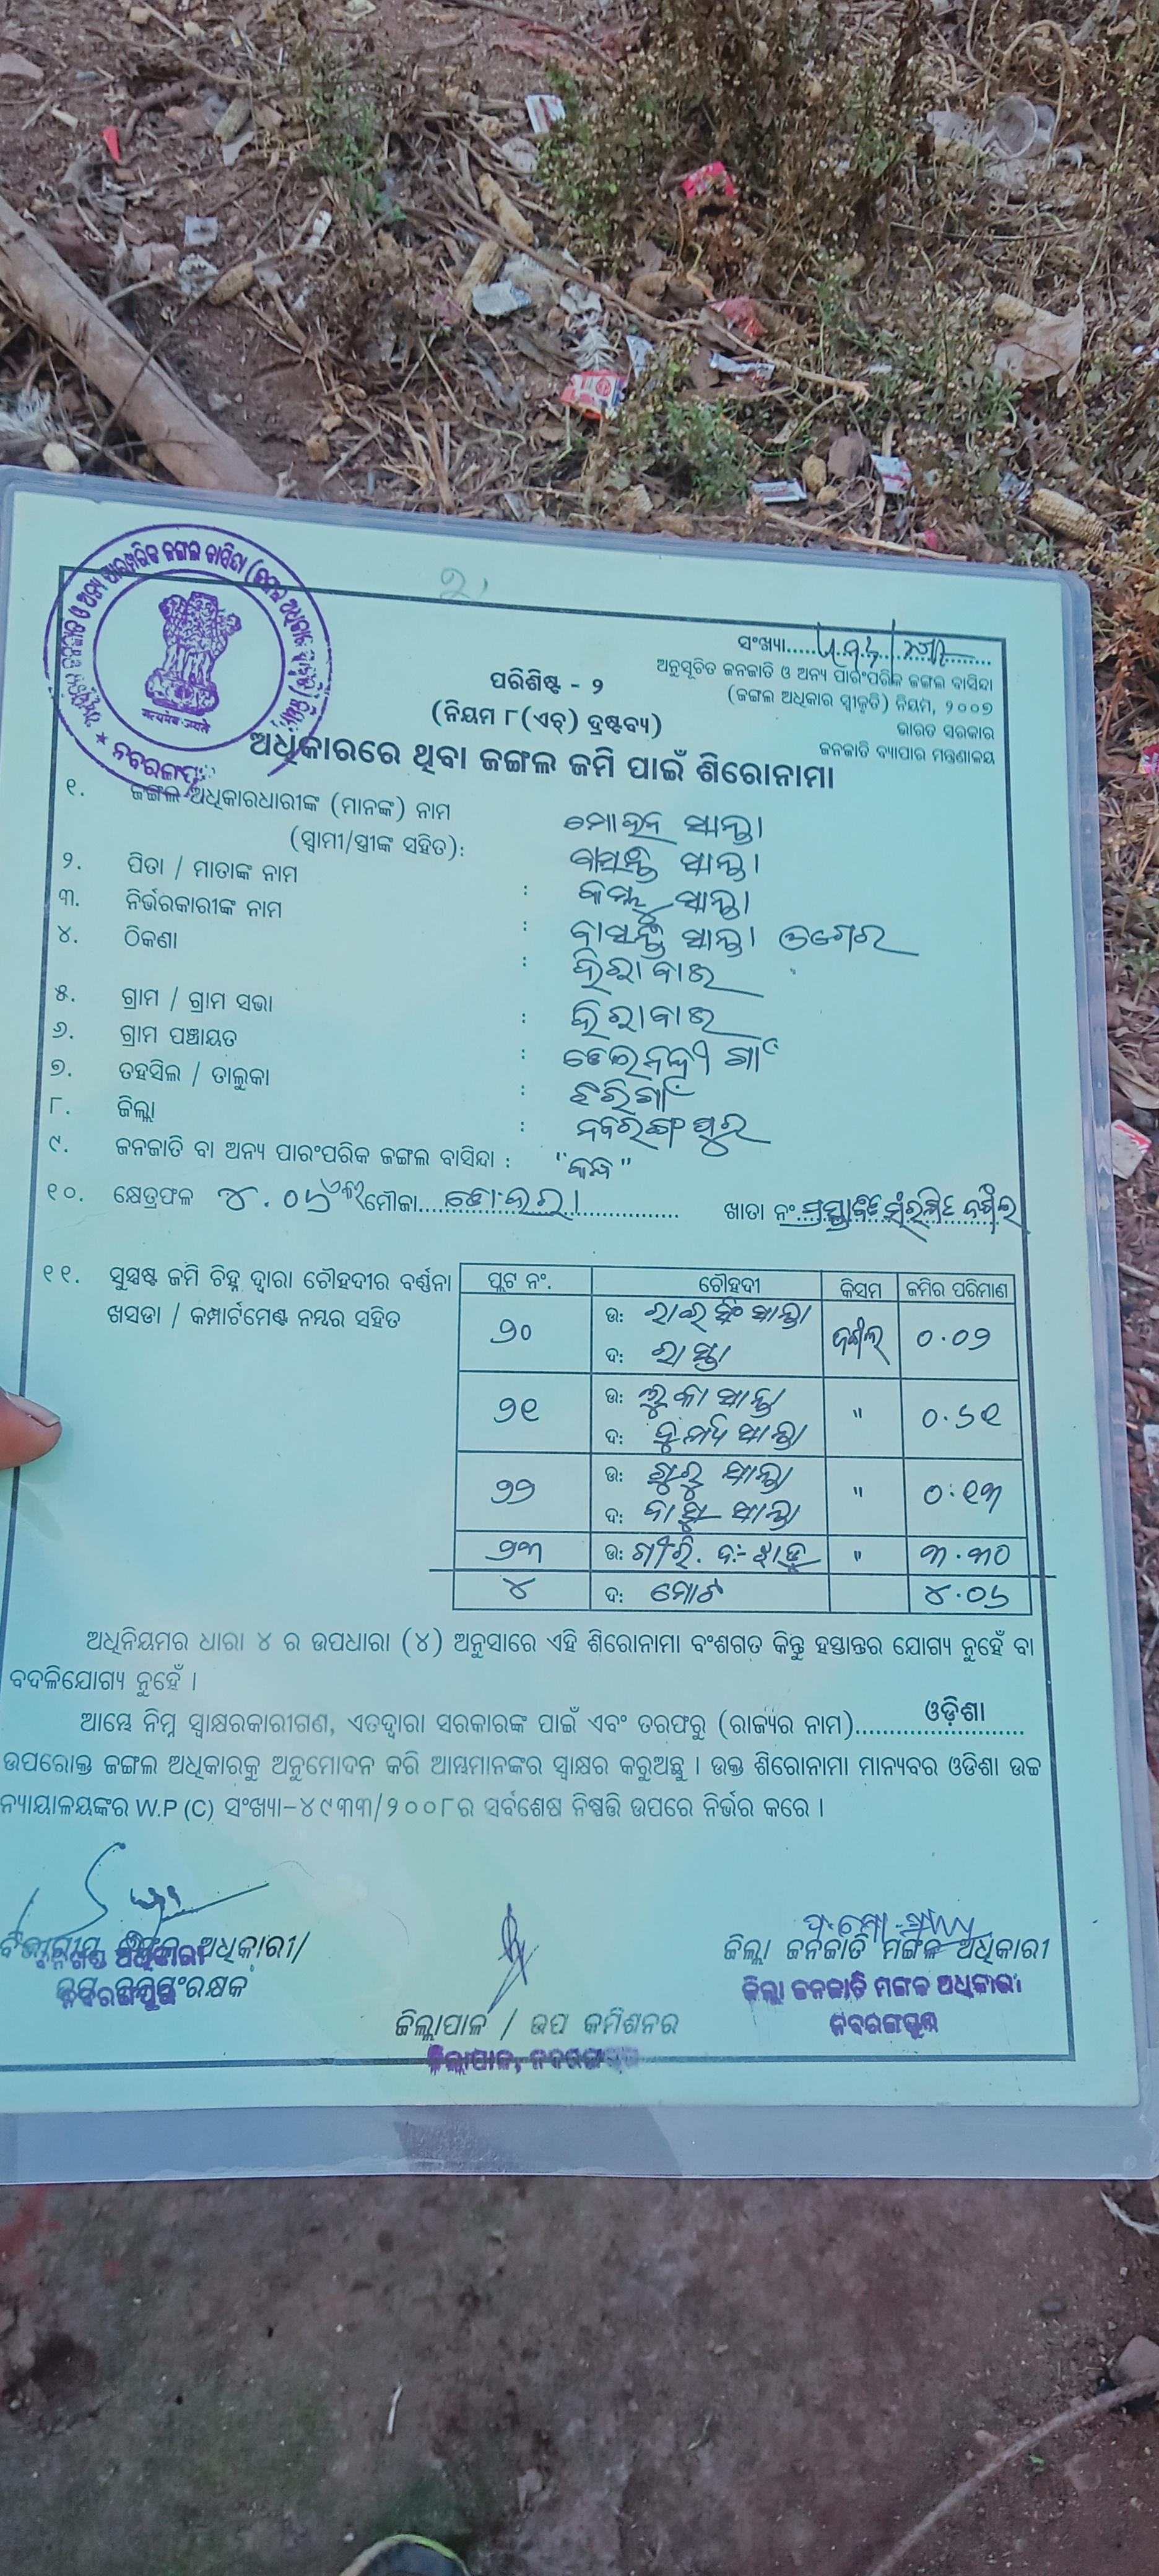 ସଂଖ୍ୟା
ଅନୁସୂଚିତ ଜନଜାତି ଓ ଅନ୍ୟ ପାରଂପରିକ ଜଙ୍ଗଲ ବାସିନ୍ଦା
(ଜଙ୍ଗଲ ଅଧିକାର ସ୍ୱୀକୃତି) ନିୟମ, ୨୦୦୭
ଭାରତ ସରକାର
ଜନଜାତି ବ୍ୟାପାର ମନ୍ତ୍ରଣାଳୟ
ପରିଶିଷ୍ଟ - ୨
(ନିୟମ ୮(ଏଚ୍) ଦ୍ରଷ୍ଟବ୍ୟ)
ଅଧିକାରରେ ଥିବା ଜଙ୍ଗଲ ଜମି ପାଇଁ ଶିରୋନାମା
୧. ଜଙ୍ଗଲ ଅଧିକାରଧାରୀଙ୍କ (ମାନଙ୍କ) ନାମ ମୋହନ ସାନ୍ତା
(ସ୍ୱାମୀ/ସ୍ତ୍ରୀଙ୍କ ସହିତ): ବାସନ୍ତି ସାନ୍ତା
୨. ପିତା / ମାତାଙ୍କ ନାମ : ସାନ୍ତା
୩. ନିର୍ଭରକାରୀଙ୍କ ନାମ : ବାସନ୍ତି ସାନ୍ତା
୪. ଠିକଣା : ହିରାବାଇ
୫. ଗ୍ରାମ / ଗ୍ରାମ ସଭା : ହିରାବାଇ
୬. ଗ୍ରାମ ପଞ୍ଚାୟତ :
୭. ତହସିଲ / ତାଲୁକା : ଝରିଗାଁ
୮. ଜିଲ୍ଲା : ନବରଙ୍ଗପୁର
୯. ଜନଜାତି ବା ଅନ୍ୟ ପାରଂପରିକ ଜଙ୍ଗଲ ବାସିନ୍ଦା : "କନ୍ଧ"
୧୦. କ୍ଷେତ୍ରଫଳ ୪.୦୬ ମୌଜା ଖାତା ନଂ ପ୍ରସ୍ତାବିତ ସଂରକ୍ଷିତ ଜଙ୍ଗଲ
୧୧. ସୁସ୍ପଷ୍ଟ ଜମି ଚିହ୍ନ ଦ୍ୱାରା ଚୌହଦୀର ବର୍ଣ୍ଣନା
ଖସଡା / କମ୍ପାର୍ଟମେଣ୍ଟ ନମ୍ବର ସହିତ
ପ୍ଲଟ ନଂ. ଚୌହଦୀ କିସମ ଜମିର ପରିମାଣ
୨୦ ଉ: ରାଇସିଂ ସାନ୍ତା ଜଙ୍ଗଲ ୦.୦୨
ଦ: ରାସ୍ତା
୨୧ ଉ: ଲୁକା ସାନ୍ତା " ୦.୬୧
ଦ: ସାନ୍ତା
୨୨ ଉ: ଗୁରୁ ସାନ୍ତା " ୦.୧୩
ଦ: ବାସୁ ସାନ୍ତା
୨୩ ଉ: ଗୀରି. ଦ:- ଝାଡୁ " ୩.୩୦
୪ ଦ: ମୋଟ ୪.୦୬
ଅଧିନିୟମର ଧାରା ୪ ର ଉପଧାରା (୪) ଅନୁସାରେ ଏହି ଶିରୋନାମା ବଂଶଗତ କିନ୍ତୁ ହସ୍ତାନ୍ତର ଯୋଗ୍ୟ ନୁହେଁ ବା
ବଦଳିଯୋଗ୍ୟ ନୁହେଁ ।
ଆମ୍ଭେ ନିମ୍ନ ସ୍ୱାକ୍ଷରକାରୀଗଣ, ଏତଦ୍ୱାରା ସରକାରଙ୍କ ପାଇଁ ଏବଂ ତରଫରୁ (ରାଜ୍ୟର ନାମ) ଓଡ଼ିଶା
ଉପରୋକ୍ତ ଜଙ୍ଗଲ ଅଧିକାରକୁ ଅନୁମୋଦନ କରି ଆମ୍ଭମାନଙ୍କର ସ୍ୱାକ୍ଷର କରୁଅଛୁ । ଉକ୍ତ ଶିରୋନାମା ମାନ୍ୟବର ଓଡିଶା ଉଚ୍ଚ
ନ୍ୟାୟାଳୟଙ୍କର W.P (C) ସଂଖ୍ୟା-୪୯୩୩/୨୦୦୮ର ସର୍ବଶେଷ ନିଷ୍ପତ୍ତି ଉପରେ ନିର୍ଭର କରେ ।
ଅଧିକାରୀ/
ଜିଲ୍ଲା ଜନଜାତି ମଙ୍ଗଳ ଅଧିକାରୀ
ଜିଲ୍ଲା ଜନଜାତି ମଙ୍ଗଳ ଅଧିକାରୀ
ନବରଙ୍ଗପୁର
ଜିଲ୍ଲାପାଳ / ଉପ କମିଶନର
ଜିଲ୍ଲାପାଳ, ନବରଙ୍ଗପୁର